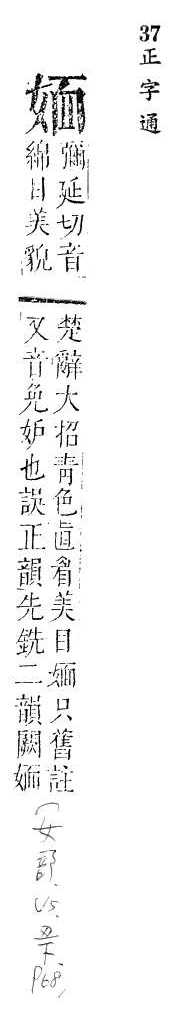 37正字通
媔
彌延切音
綿目美貌
楚辭大招青色直眉美目媔只舊註
又音免妒也誤正韻先銑二韻闕媔
(女部.U5.昃下.P68,